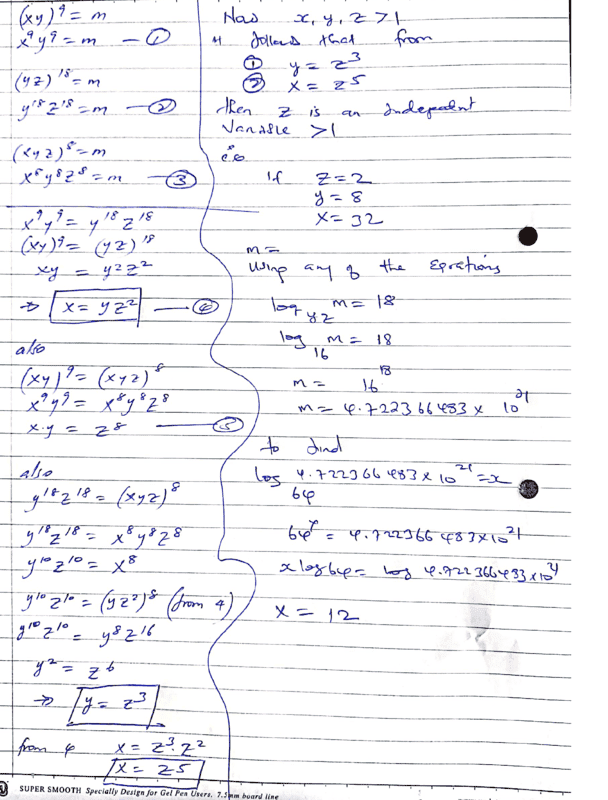 (xy)⁹ = m
x⁹y⁹ = m — ①
(yz)¹⁸ = m
y¹⁸z¹⁸ = m — ②
(xyz)⁸ = m
x⁸y⁸z⁸ = m — ③
x⁹y⁹ = y¹⁸z¹⁸
(xy)⁹ = (yz)¹⁸
xy = y²z²
⇒ x = yz² — ④
also
(xy)⁹ = (xyz)⁸
x⁹y⁹ = x⁸y⁸z⁸
x.y = z⁸ — ⑤
also
y¹⁸z¹⁸ = (xyz)⁸
y¹⁸z¹⁸ = x⁸y⁸z⁸
y¹⁰z¹⁰ = x⁸
y¹⁰z¹⁰ = (yz²)⁸ (from 4)
y¹⁰z¹⁰ = y⁸z¹⁶
y² = z⁶
⇒ y = z³
from 4 x = z³.z²
x = z⁵
Now x, y, z > 1
it follows that from
① y = z³
② x = z⁵
then z is an independent
Variable > 1
ie
if z = 2
y = 8
x = 32
m =
Using any of the Equations
log_yz m = 18
log_16 m = 18
m = 16¹⁸
m = 4.722366483 x 10²¹
to find
log_64 4.722366483 x 10²¹ = x
64ˣ = 4.722366483x10²¹
x log 64 = log 4.722366483x10²¹
x = 12
SUPER SMOOTH Specially Design for Gel Pen Users. 7.5mm board line